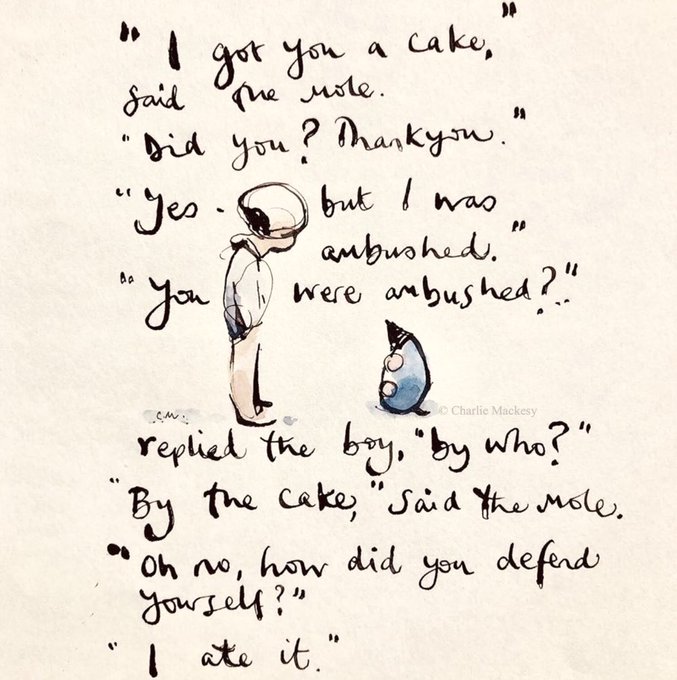 "I got you a cake,"
said the mole.
"Did you? Thankyou."
"Yes - but I was
ambushed."
"You were ambushed?"
C.M.
© Charlie Mackesy
replied the boy, "by who?"
"By the cake," said the mole.
"Oh no, how did you defend
yourself?"
"I ate it."